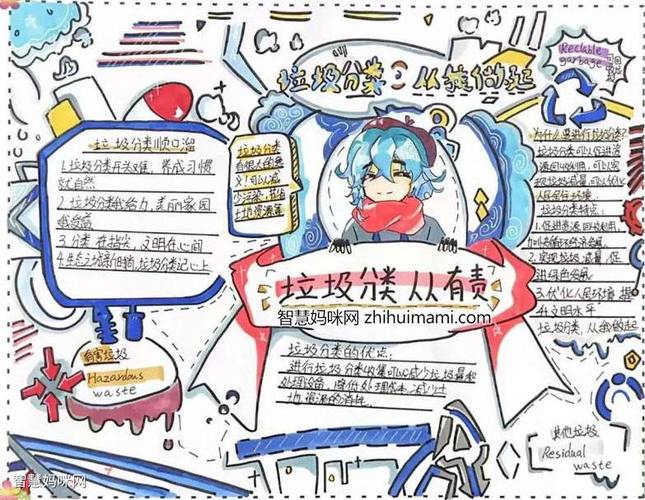 垃圾分类：从我做起
Reclable
garbage
可回收垃圾
垃圾分类顺口溜
1.垃圾分类并不难，养成习惯
就自然
2.垃圾分类我给力，美丽家园
我受益
3.分类在指尖，文明在心间
垃圾分类记心上
垃圾分类
土地资源等
为什么要进行垃圾分类?
垃圾分类可以促进资
源回收利用，可以实
现垃圾减量，可以优化
人居环境.
垃圾分类特点:
1.促进资源回收利用，
2.实现垃圾减量，促
进绿色发展
3.优化人居环境，提
升文明水平
垃圾分类，从我做起
垃圾分类 从人有责
智慧妈咪网 zhihuimami.com
垃圾分类的优点:
进行垃圾分类收集可以减少垃圾量和
处理设备，降低处理成本，减少土
地资源的消耗
有害垃圾
Hazardous
waste
其他垃圾
Residual
waste
智慧妈咪网